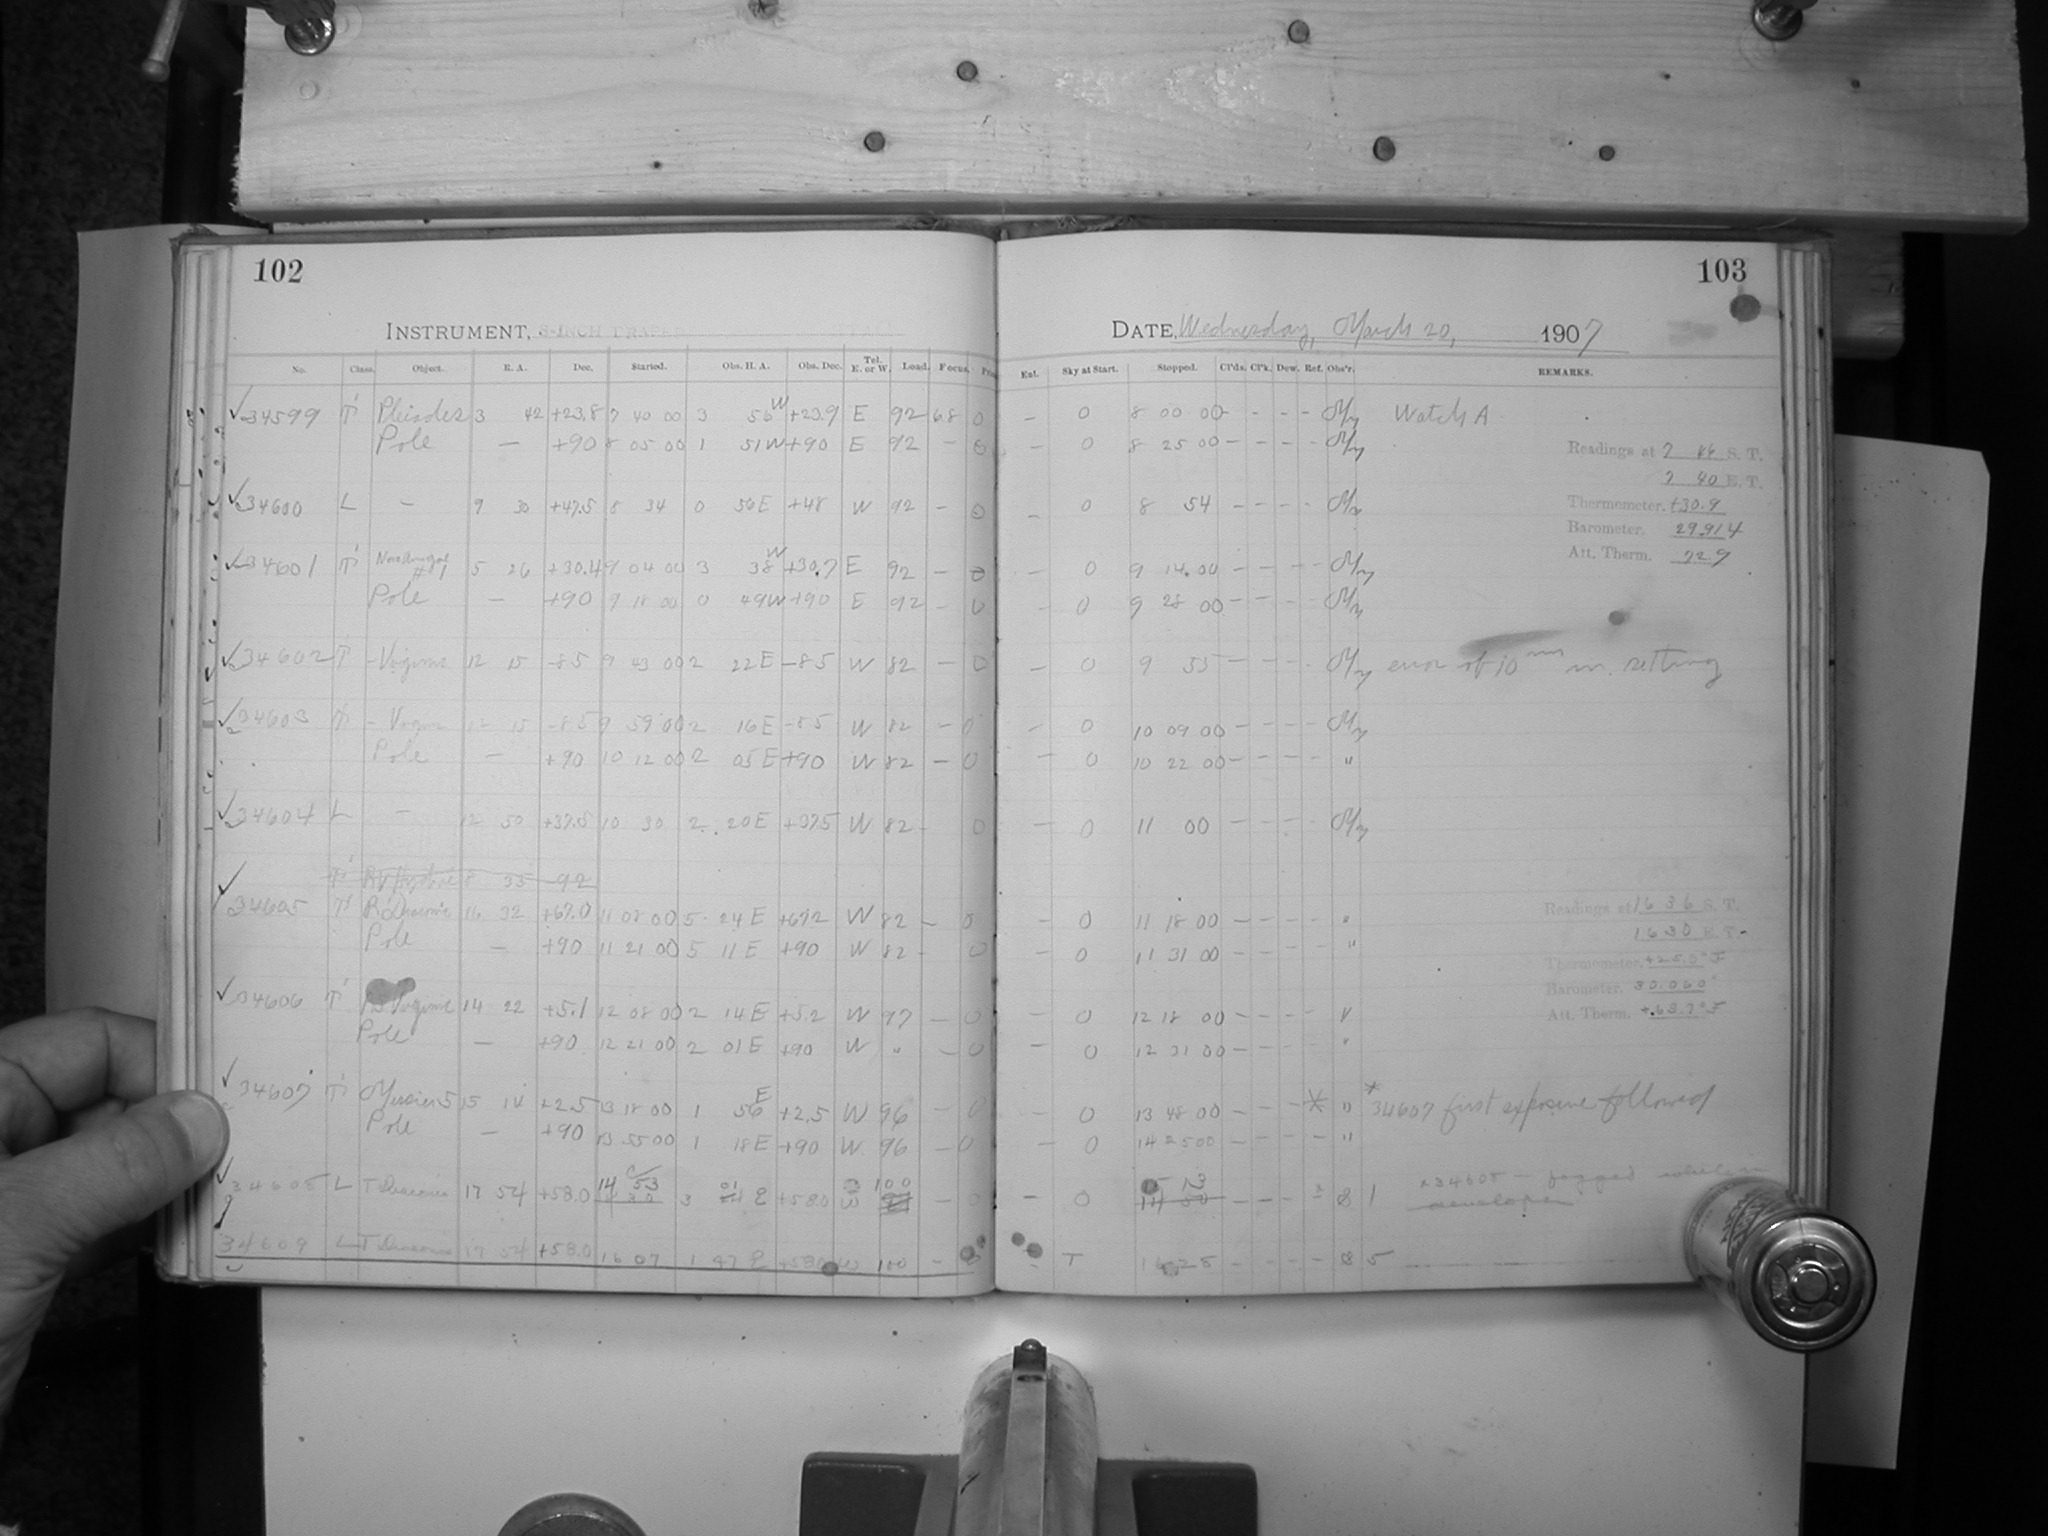 102
INSTRUMENT, 8-INCH DRAPER
No. Class. Object. R. A. Dec. Started. Obs. H. A. Obs. Dec. Tel. E. or W. Load. Focus.
34599 T' Pleiades 3 42 +23.8 7 40 00 3 56 W +23.9 E 92 68 0
Pole — +90 8 05 00 1 51 W +90 E 92 - 0
34600 L — 9 30 +47.5 8 34 0 56 E +48 W 92 - 0
34601 T' 5 26 +30.4 9 04 00 3 38 W +30.7 E 92 - 0
Pole — +90 9 18 00 0 49 W +90 E 92 - 0
34602 T' - Virginis 12 15 -8.5 9 43 00 2 22 E -8.5 W 82 - 0
34603 T' - Virginis 12 15 -8.5 9 59 00 2 16 E -8.5 W 82 - 0
Pole — +90 10 12 00 2 05 E +90 W 82 - 0
34604 L — 12 50 +37.5 10 30 2 20 E +37.5 W 82 - 0
T' 8 35 -9.2
34605 T' R Draconis 16 32 +67.0 11 08 00 5 24 E +67.2 W 82 - 0
Pole — +90 11 21 00 5 11 E +90 W 82 - 0
34606 T' RS Virginis 14 22 +5.1 12 08 00 2 14 E +5.2 W 97 - 0
Pole — +90 12 21 00 2 01 E +90 W " - 0
34607 T' Messier 5 15 14 +2.5 13 18 00 1 56 E +2.5 W 96 - 0
Pole — +90 13 55 00 1 18 E +90 W 96 - 0
34608 L T Draconis 17 54 +58.0 14 53 3 01 E +58.0 W 100 - 0
34609 L T Draconis 17 54 +58.0 16 07 1 47 E +58.0 W 100 -
103
DATE, Wednesday, March 20, 1907
Ent. Sky at Start. Stopped. Cl'ds. Cl'k. Dew. Ref. Obs'r. REMARKS.
- 0 8 00 00 - - - - Watch A
- 0 8 25 00 - - - -
Readings at 7 46 S. T.
7 40 E. T.
- 0 8 54 - - - -
Thermometer. +30.9
Barometer. 29.914
Att. Therm. 72.9
- 0 9 14 00 - - - -
- 0 9 28 00 - - - -
- 0 9 53 - - - - error of 10 min in setting
- 0 10 09 00 - - - -
- 0 10 22 00 - - - - "
- 0 11 00 - - - -
- 0 11 18 00 - - - - "
- 0 11 31 00 - - - - "
Readings at 16 36 S. T.
16 30 E. T.
Thermometer.
Barometer. 30.060
Att. Therm.
- 0 12 18 00 - - - - "
- 0 12 31 00 - - - - "
- 0 13 48 00 - - - * " * 34607 first exposure followed
- 0 14 25 00 - - - - "
- 0 13 - - - 1 34608 - fogged when
developed
- T 16 28 - - - - 5